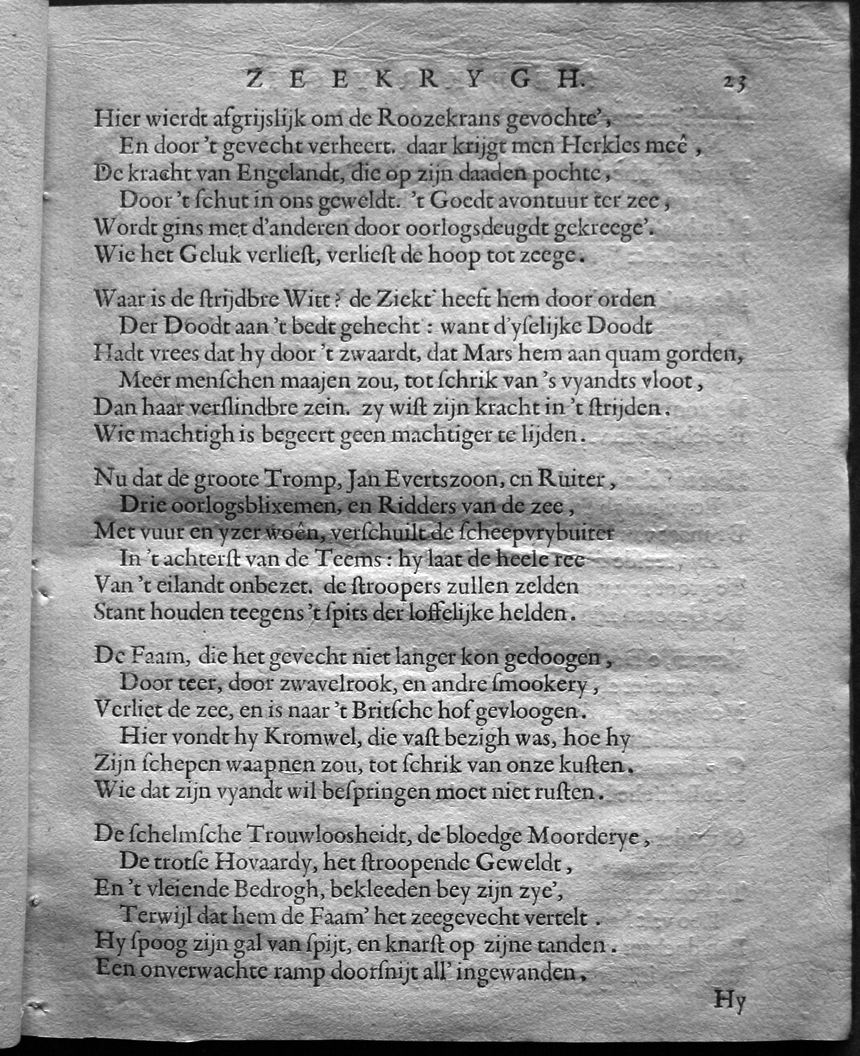 ZEEKRYGH. 23
Hier wierdt afgrijslijk om de Roozekrans gevochte',
En door 't gevecht verheert. daar krijgt men Herkles meê,
De kracht van Engelandt, die op zijn daaden pochte,
Door 't ſchut in ons geweldt. 't Goedt avontuur ter zee,
Wordt gins met d'anderen door oorlogsdeugdt gekreege'.
Wie het Geluk verlieſt, verlieſt de hoop tot zeege.
Waar is de ſtrijdbre Witt? de Ziekt' heeft hem door orden
Der Doodt aan 't bedt gehecht: want d'yſelijke Doodt
Hadt vrees dat hy door 't zwaardt, dat Mars hem aan quam gorden,
Meer menſchen maajen zou, tot ſchrik van 's vyandts vloot,
Dan haar verſlindbre zein. zy wiſt zijn kracht in 't ſtrijden.
Wie machtigh is begeert geen machtiger te lijden.
Nu dat de groote Tromp, Jan Evertszoon, en Ruiter,
Drie oorlogsblixemen, en Ridders van de zee,
Met vuur en yzer woên, verſchuilt de ſcheepvrybuiter
In 't achterſt van de Teems: hy laat de heele ree
Van 't eilandt onbezet. de ſtroopers zullen zelden
Stant houden teegens 't ſpits der loffelijke helden.
De Faam, die het gevecht niet langer kon gedoogen,
Door teer, door zwavelrook, en andre ſmookery,
Verliet de zee, en is naar 't Britſche hof gevloogen.
Hier vondt hy Kromwel, die vaſt bezigh was, hoe hy
Zijn ſchepen waapnen zou, tot ſchrik van onze kuſten.
Wie dat zijn vyandt wil beſpringen moet niet ruſten.
De ſchelmſche Trouwloosheidt, de bloedge Moorderye,
De trotſe Hovaardy, het ſtroopende Geweldt,
En 't vleiende Bedrogh, bekleeden bey zijn zye',
Terwijl dat hem de Faam' het zeegevecht vertelt.
Hy ſpoog zijn gal van ſpijt, en knarſt op zijne tanden.
Een onverwachte ramp doorſnijt all' ingewanden.
Hy